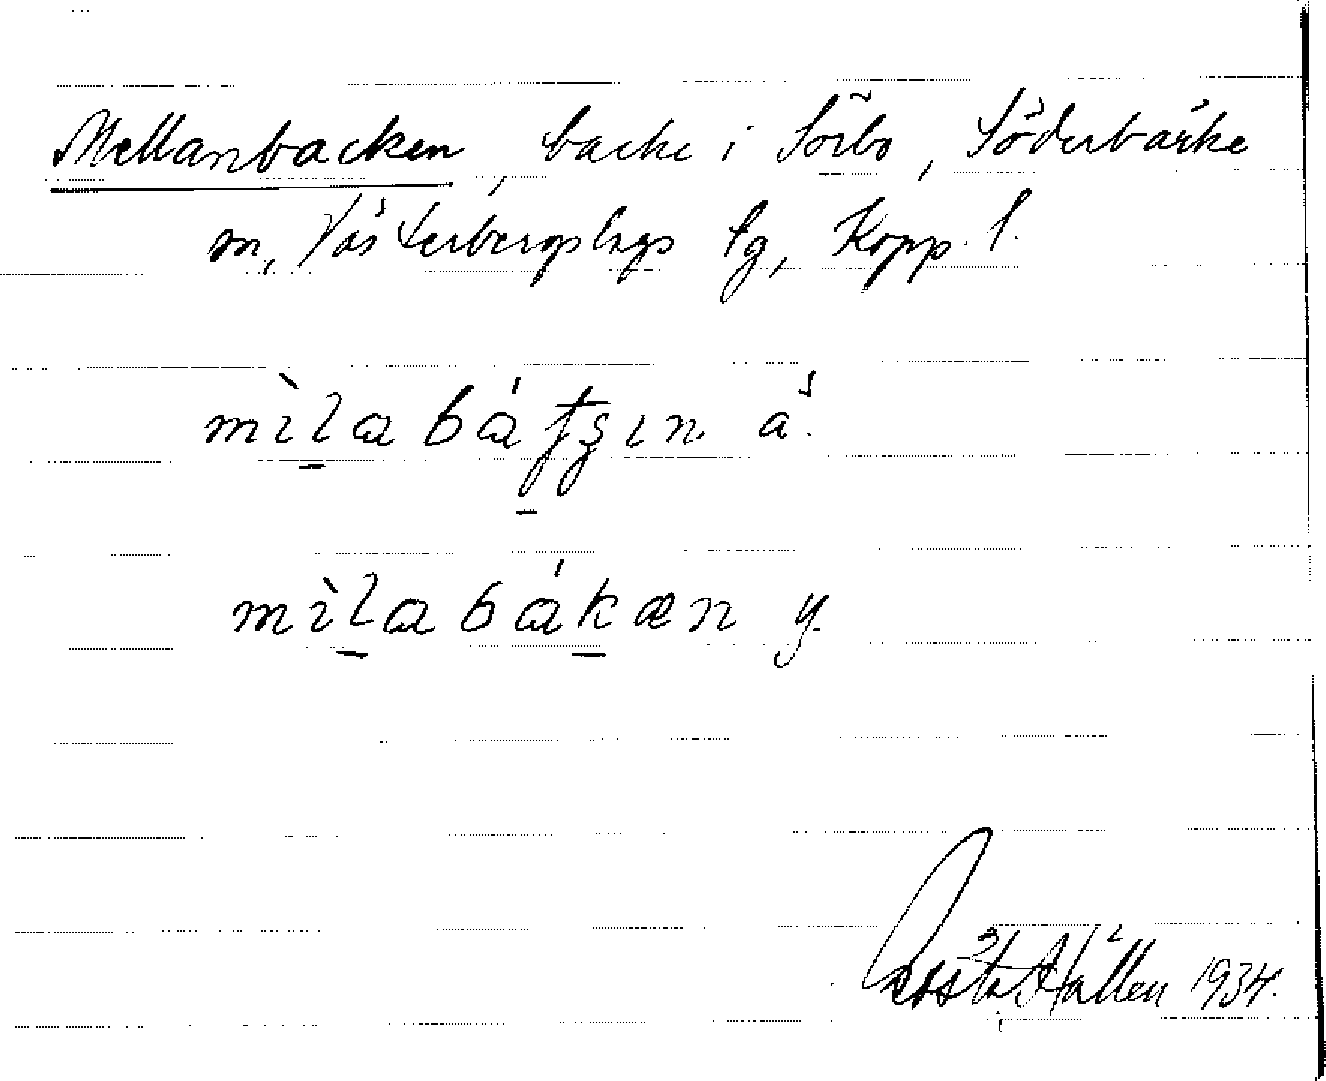 Mellanbacken, backe i Sörbo, Söderbärke
sn, Västerbergslags lg, Kopp. l.
mìla báfʒın ä.
mìla bákæn y.
Gösta Hallén 1934.